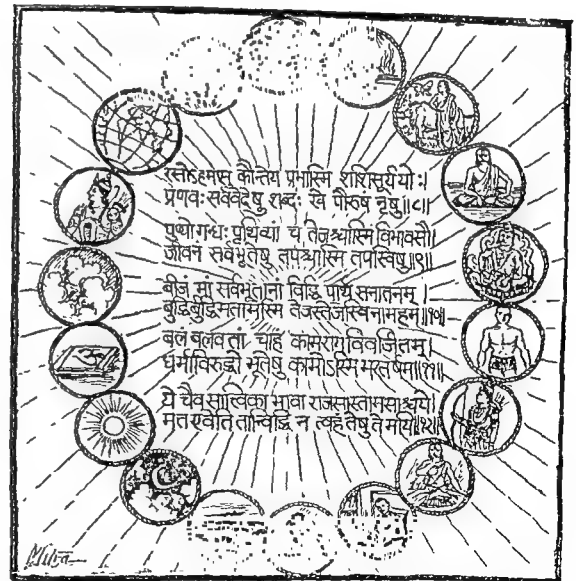 रसोऽहमप्सु कौन्तेय प्रभास्मि शशिसूर्ययोः।
प्रणवः सर्ववेदेषु शब्दः खे पौरुषं नृषु॥८॥
पुण्योगन्धः पृथिव्यां च तेजश्चास्मि विभावसौ।
जीवनं सर्वभूतेषु तपश्चास्मि तपस्विषु॥९॥
बीजं मां सर्वभूतानां विद्धि पार्थ सनातनम्।
बुद्धिर्बुद्धिमतामस्मि तेजस्तेजस्विनामहम्॥१०॥
बलं बलवतां चाहं कामरागविवर्जितम्।
धर्माविरुद्धो भूतेषु कामोऽस्मि भरतर्षभ॥११॥
ये चैव सात्त्विका भावा राजसास्तामसाश्चये।
मत्त एवेति तान्विद्धि न त्वहं तेषु ते मयि॥१२॥
Mitra